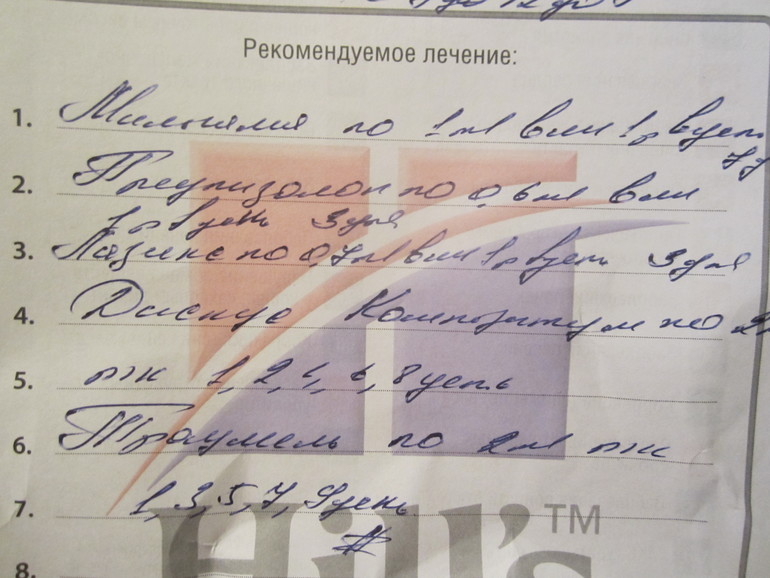 Рекомендуемое лечение:
1. Мильгамма по 1 мл в/м 1 р в день
7 д
2. Преднизолон по 0,6 мл в/м
1 р в день 3 дня
3. Лазикс по 0,7 мл в/м 1 р в день 3 дня
4. Дискус Композитум по 2
5. п/к 1, 2, 4, 6, 8 день
6. Траумель по 2 мл п/к
7. 1, 3, 5, 7, 9 день
Hill's™
8.